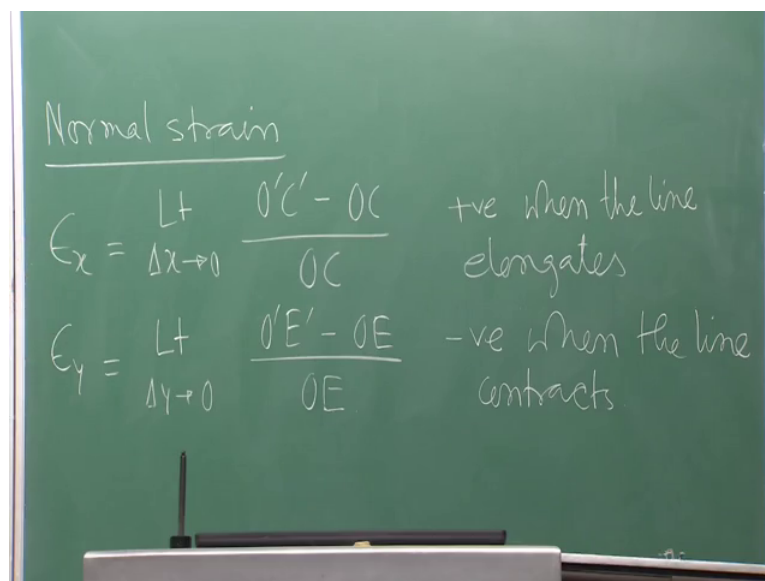 Normal strain
ϵx = Lt Δx→0 O'C' - OC / OC +ve when the line elongates
ϵy = Lt Δy→0 O'E' - OE / OE -ve when the line contracts